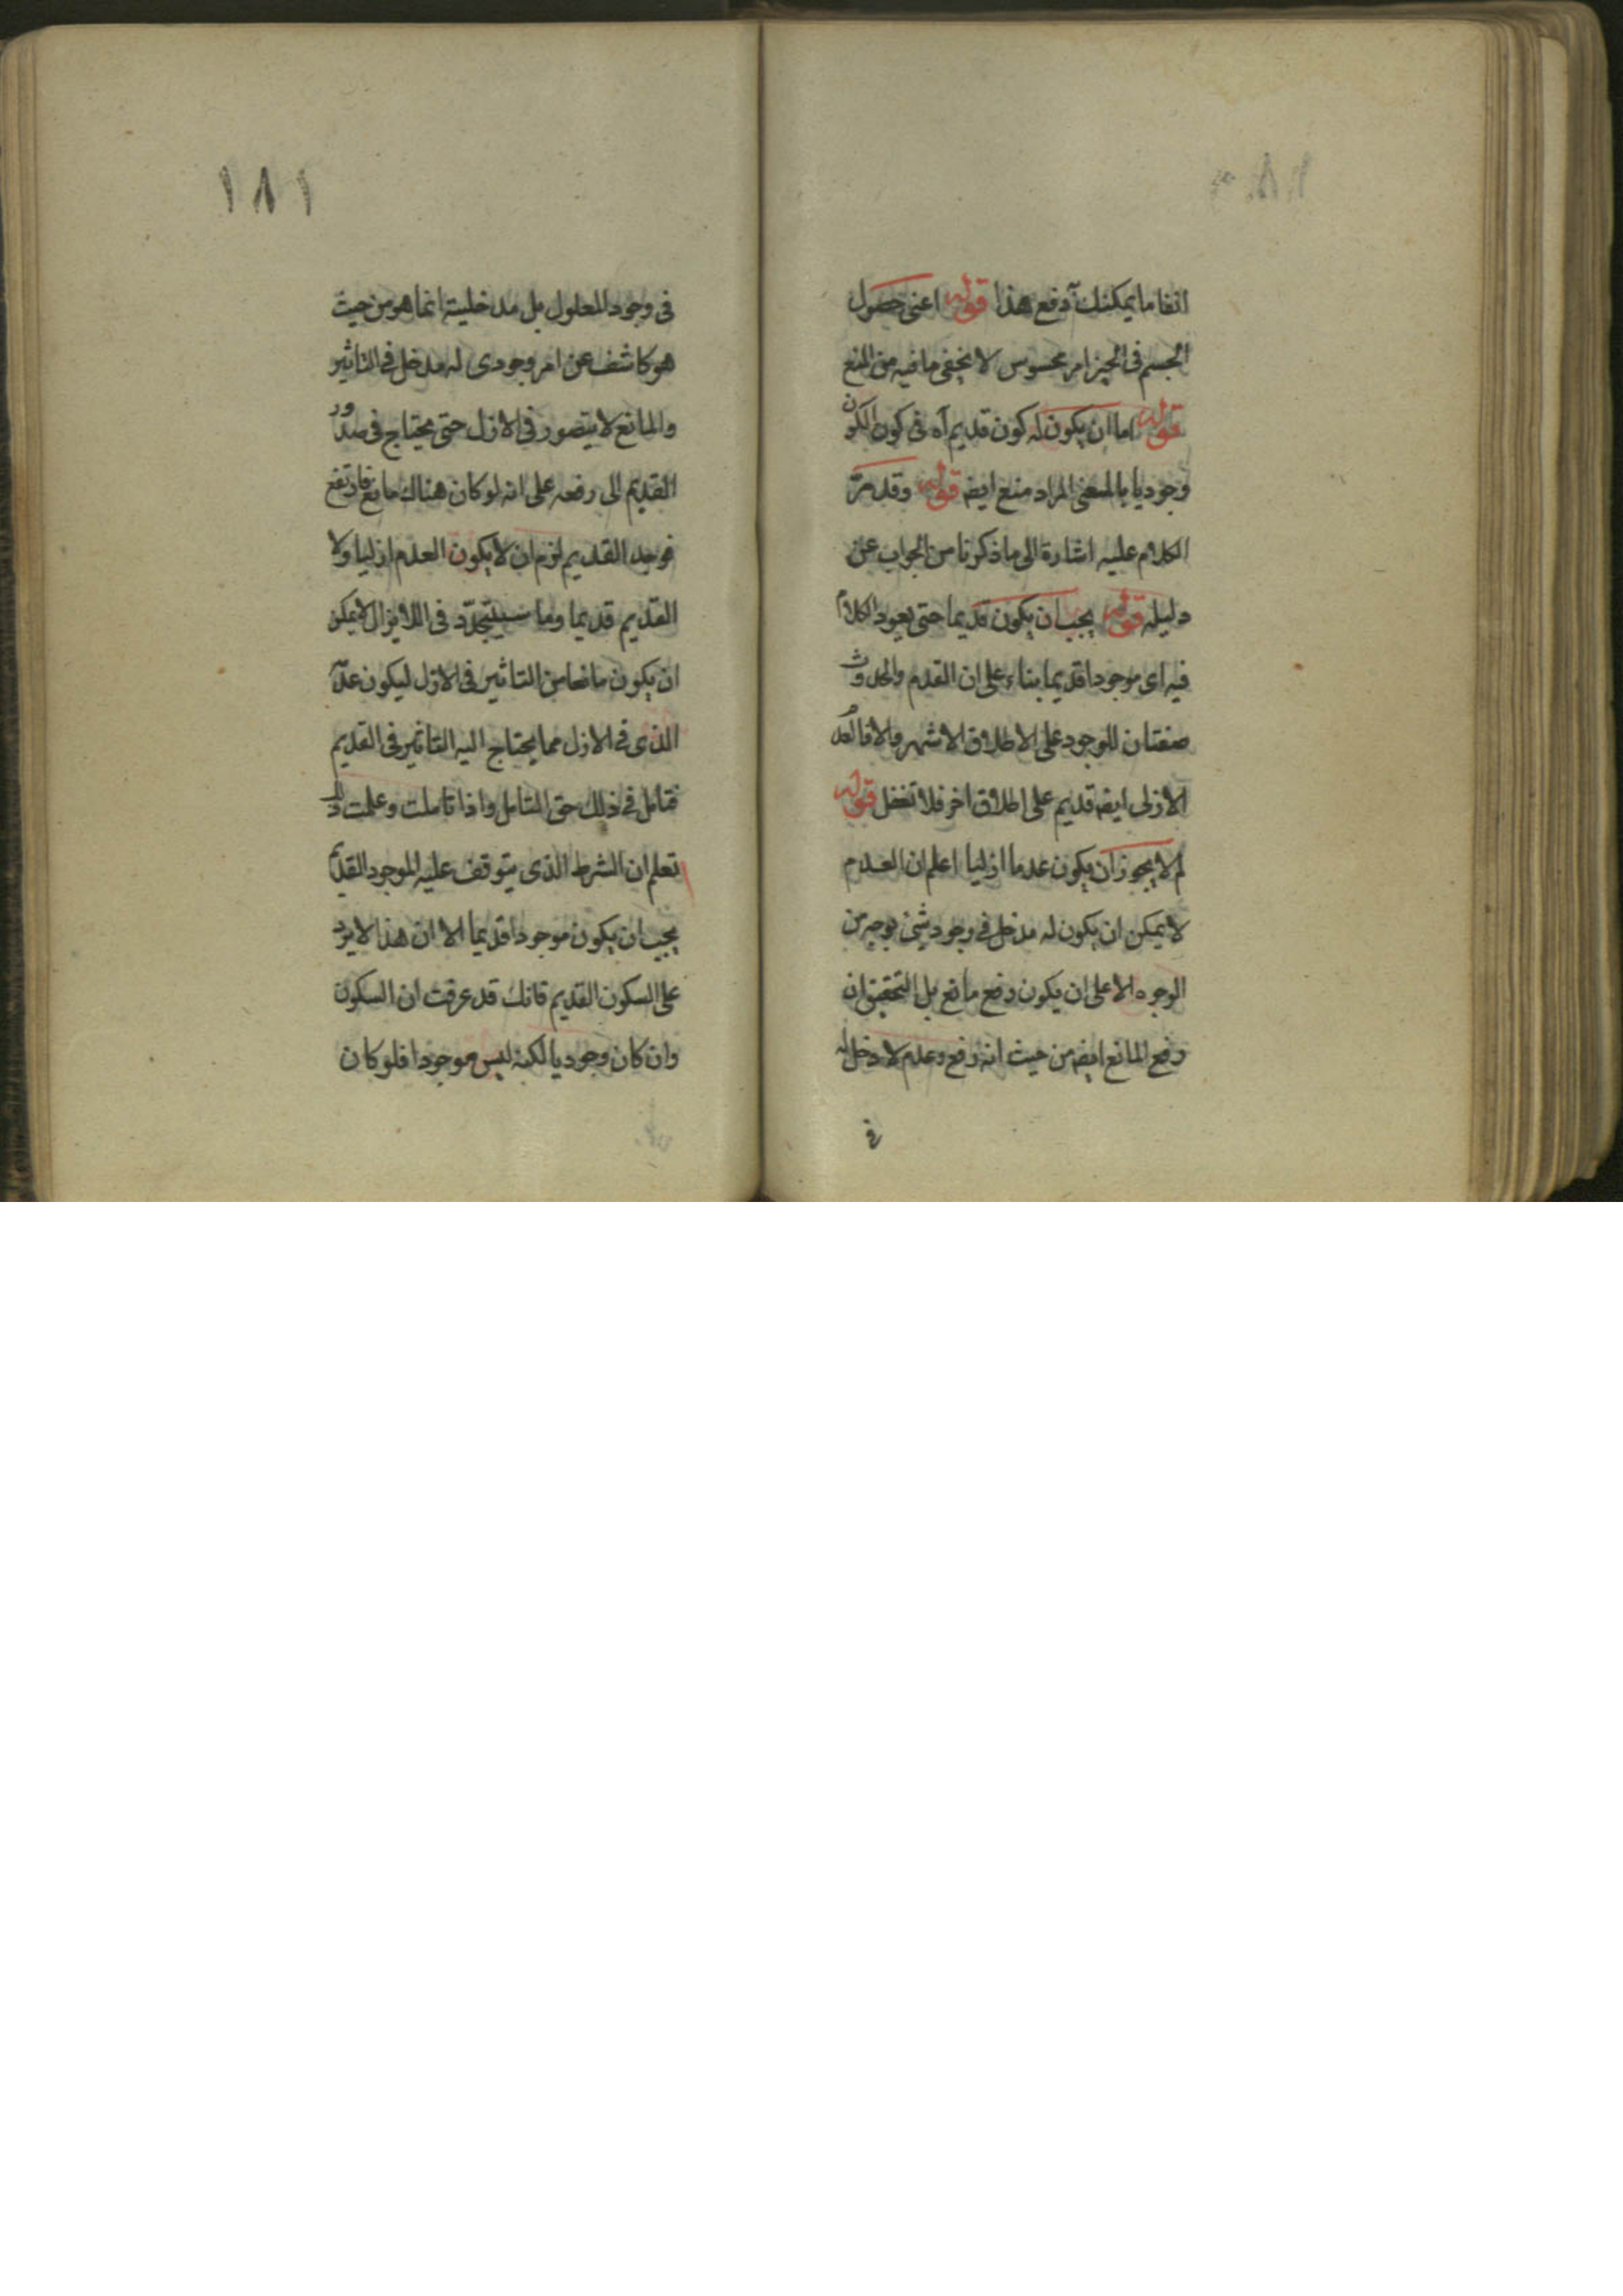 انفا ما يمكنك دفع هذا قوله اعنى حصول
الجسم فى الحيز امر محسوس لا يخفى ما فيه من المنع
قوله اما ان يكون له كون قديم آه فى كون الكون
وجوديا بالمعنى المراد منع ايضه قوله وقد مرّ
الكلام عليه اشارة الى ما ذكرنا من الجواب عن
دليله قوله يجب ان يكون قديما حتى يعود الكلام
فيه اى موجودا قديما بناء على ان القدم والحدوث
صفتان للوجود على الاطلاق الاشهر والا فالعدم
الازلى ايضه قديم على اطلاق اخر فلا تغفل قوله
لم لا يجوز ان يكون عدما ازليا اعلم ان العدم
لا يمكن ان يكون له مدخل فى وجود شئ بوجه من
الوجوه الا على ان يكون رفع مانع بل التحقيق ان
رفع المانع ايضه من حيث انه رفع وعدم لا دخل له
فى
١٨١
فى وجود المعلول بل مدخليته انما هو من حيث
هو كاشف عن امر وجودى له مدخل فى التاثير
والمانع لا يتصور فى الازل حتى يحتاج فى صدور
القديم الى رفعه على انه لو كان هناك مانع فارتفع
فوجد القديم لزم ان لا يكون العدم ازليا ولا
القديم قديما وما سيتجدّد فى اللا يزال لا يمكن
ان يكون مانعا من التاثير فى الازل ليكون عدمه
الذى فى الازل مما يحتاج اليه التاثير فى القديم
فتامل فى ذلك حق التامل واذا تاملت وعلمت ذلك
تعلم ان الشرط الذى يتوقف عليه الموجود القديم
يجب ان يكون موجودا قديما الا ان هذا لا يرد
على السكون القديم فانك قد عرفت ان السكون
وان كان وجوديا لكنه ليس موجودا فلو كان